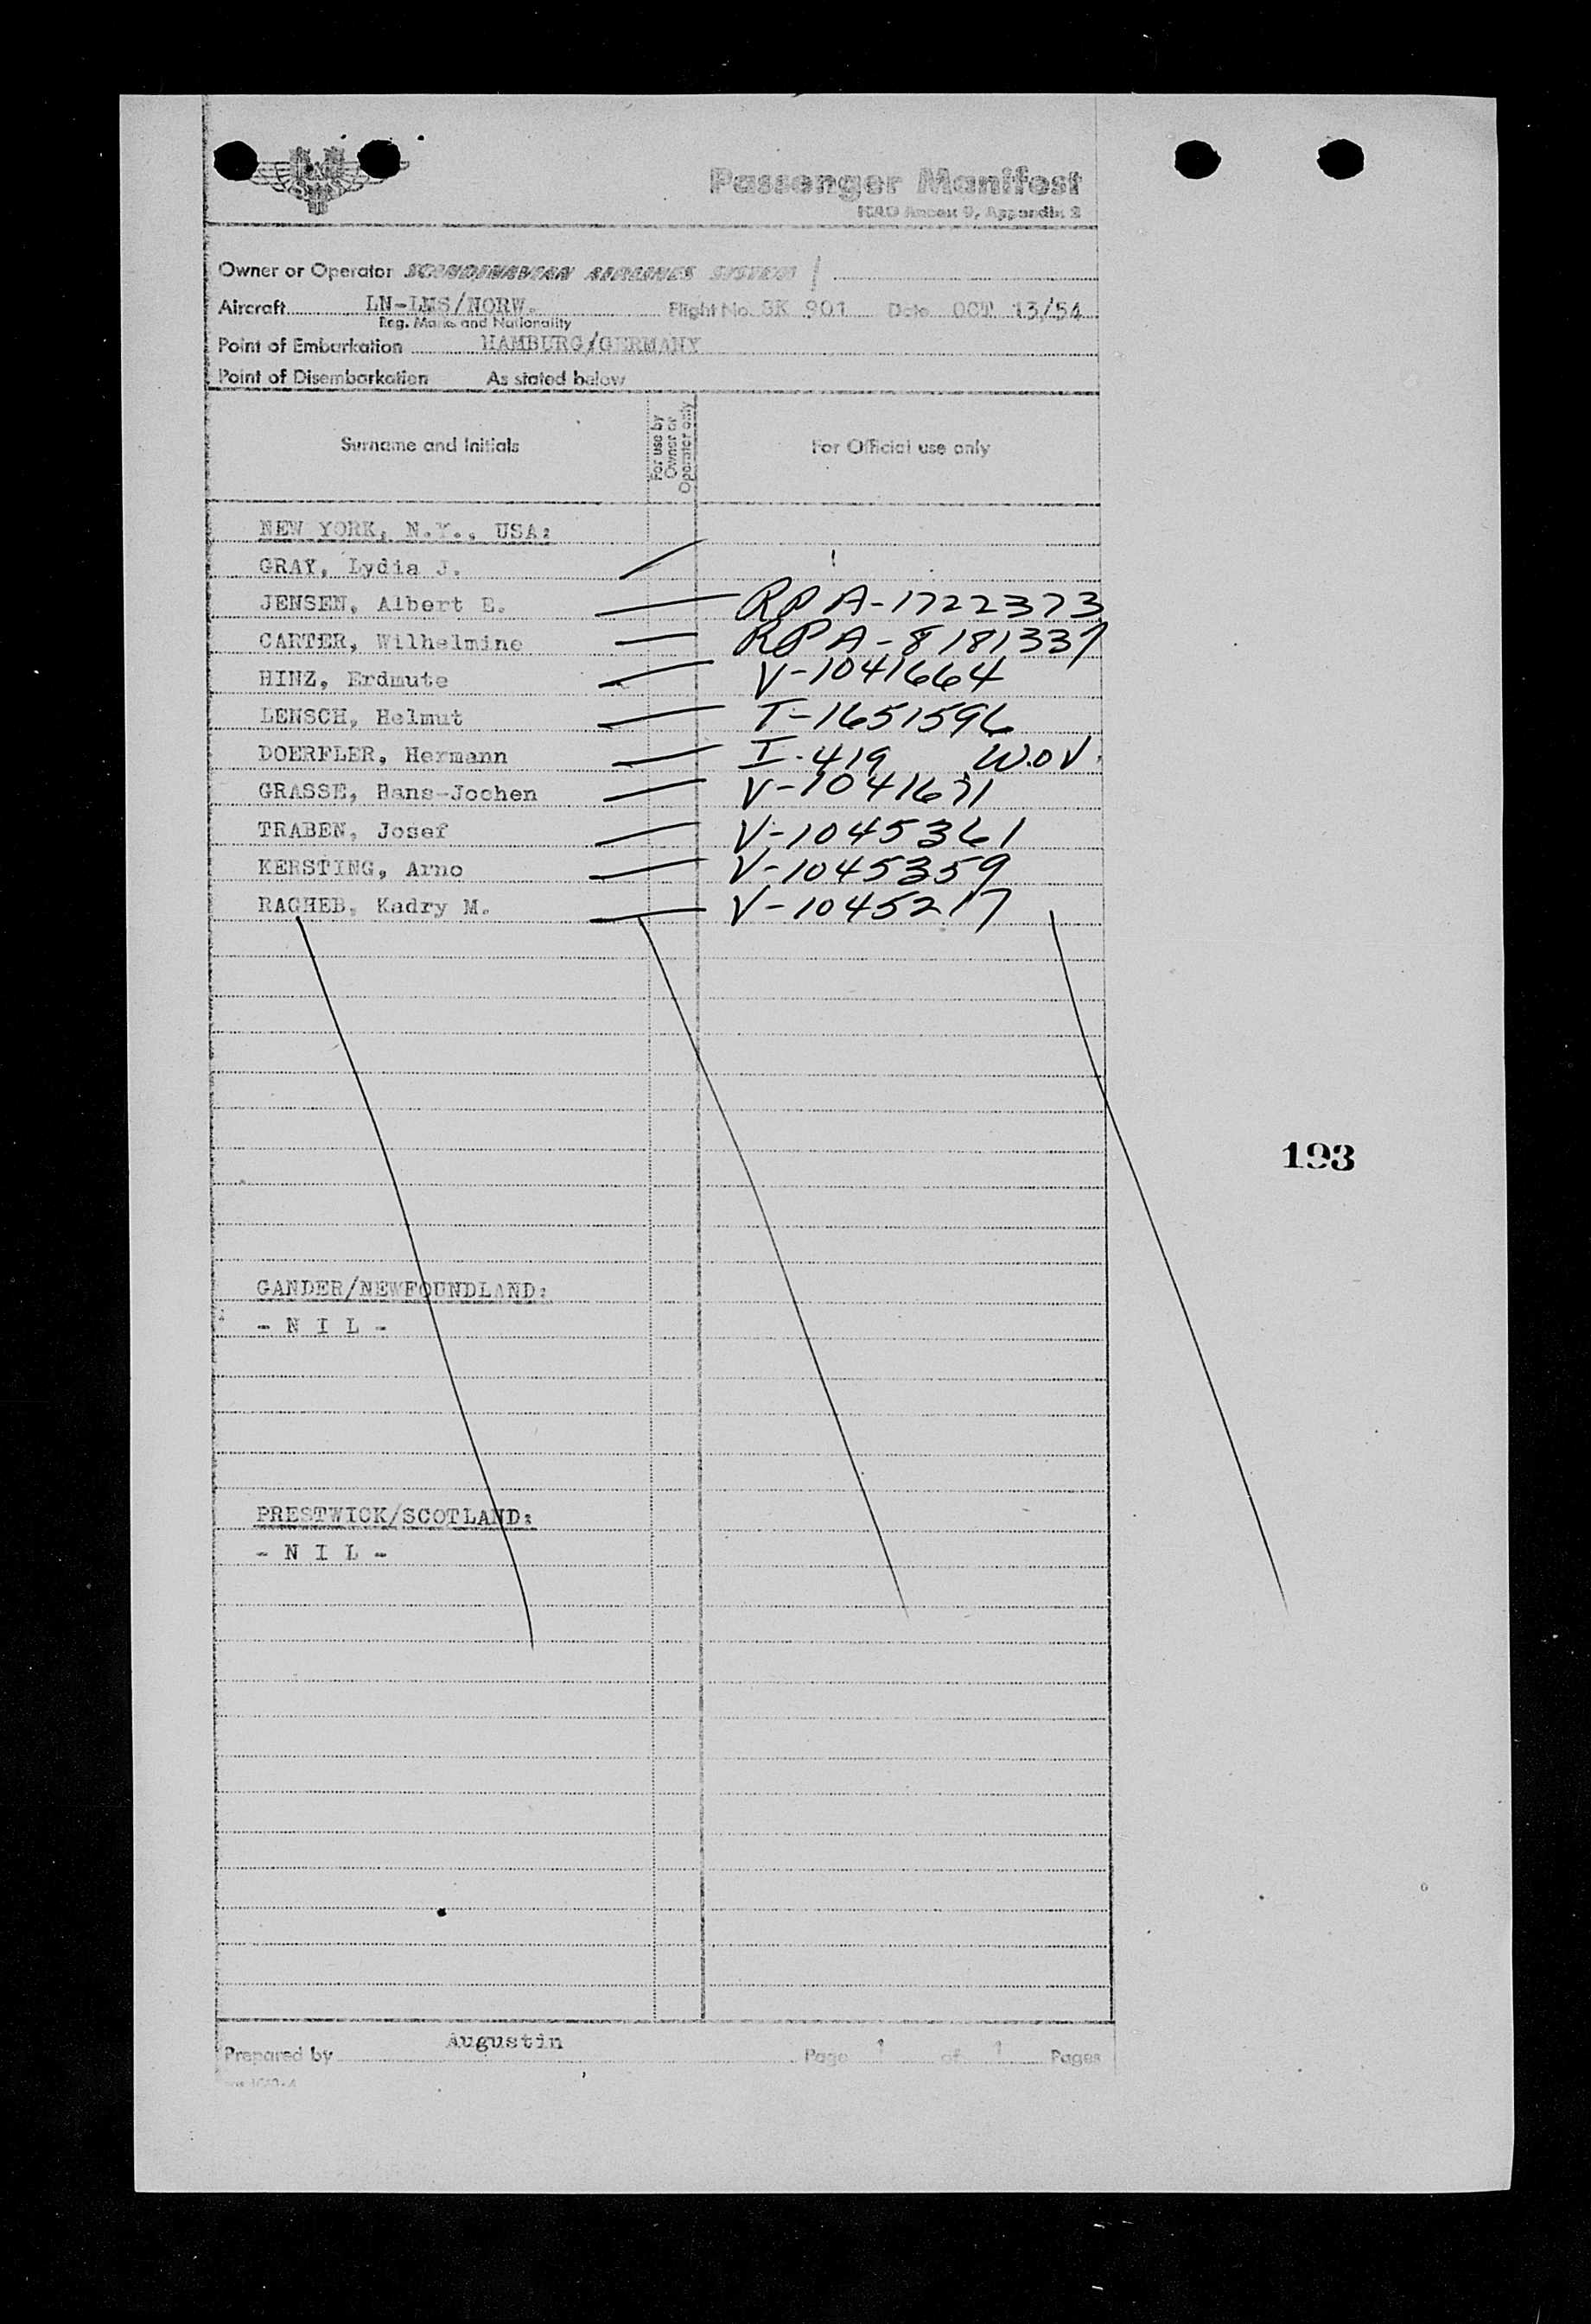 SAS
Passenger Manifest
ICAO Annex 9, Appendix 2
Owner or Operator SCANDINAVIAN AIRLINES SYSTEM
Aircraft LN-LMS/NORW. Flight No. SK 901 Date OCT 13/54
Reg. Marks and Nationality
Point of Embarkation HAMBURG/GERMANY
Point of Disembarkation As stated below
Surname and Initials
For use by Owner or Operator only
For Official use only
NEW YORK, N.Y., USA:
GRAY, Lydia J.
JENSEN, Albert E. RP A-1722373
CARTER, Wilhelmine RP A-8181337
HINZ, Erdmute V-1041664
LENSCH, Helmut T-1651596
DOERFLER, Hermann I-419 W.O.V.
GRASSE, Hans-Jochen V-1041671
TRABEN, Josef V-1045361
KERSTING, Arno V-1045359
RAGHEB, Kadry M. V-1045217
193
GANDER/NEWFOUNDLAND:
- N I L -
PRESTWICK/SCOTLAND:
- N I L -
Prepared by Augustin Page 1 of 1 Pages